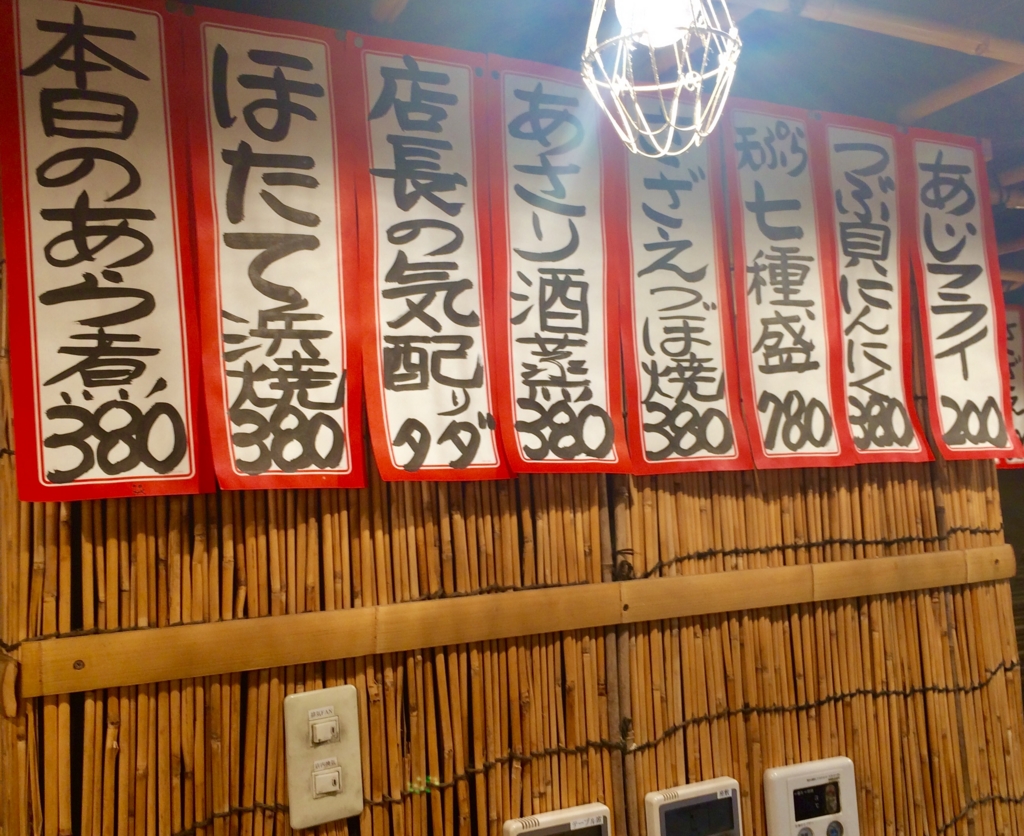 本日のあら煮
380
ほたて浜焼
380
店長の気配り
タダ
あさり酒蒸
380
さざえつぼ焼
380
天ぷら
七種盛
780
つぶ貝にんにく
380
あじフライ
200